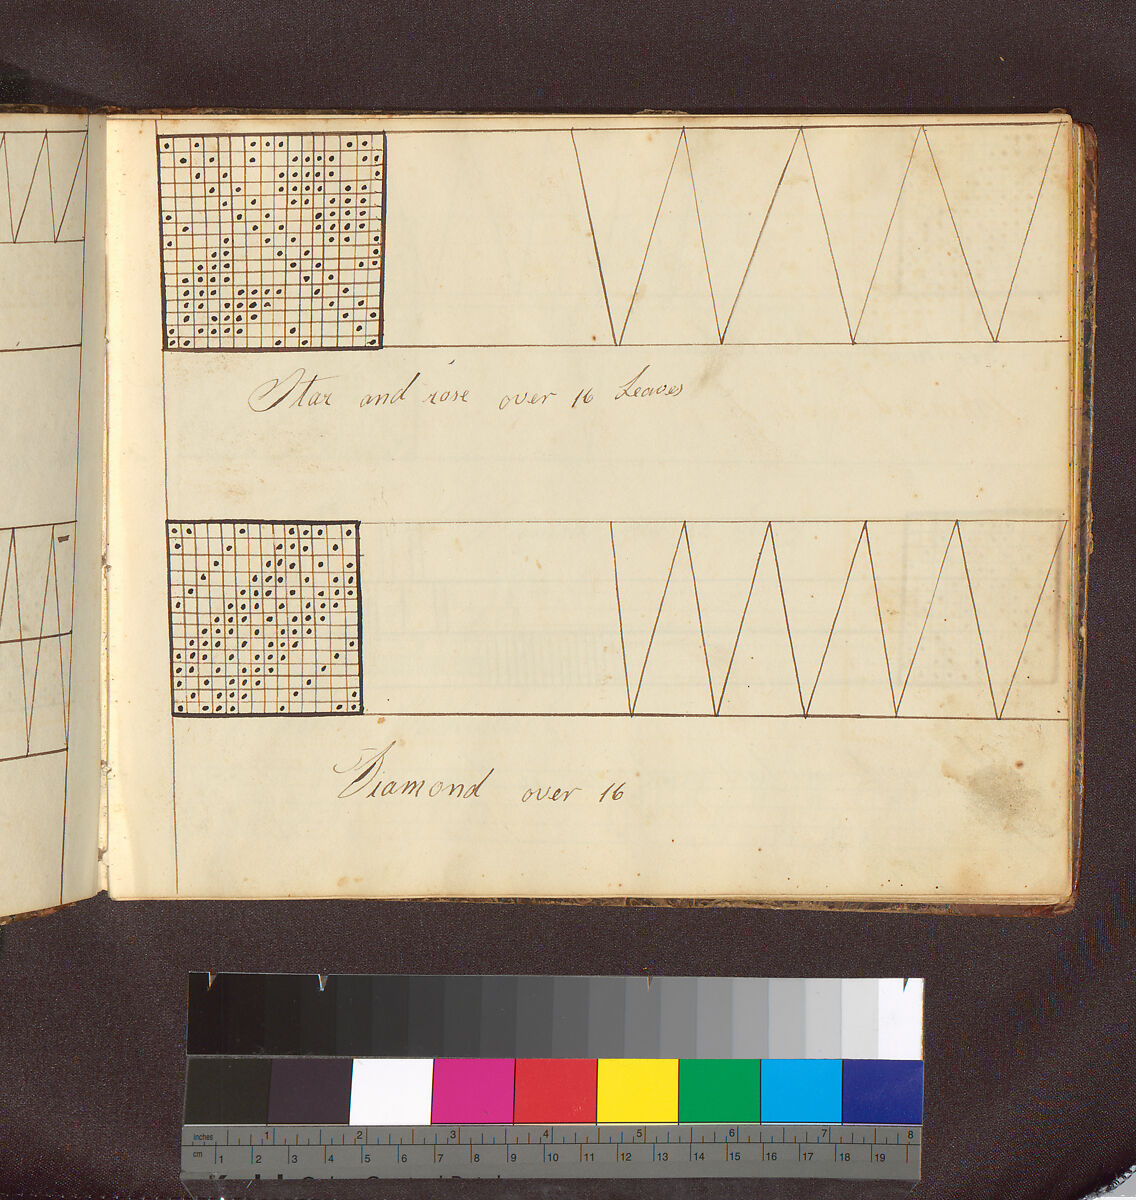 Star and rose over 16 Leaves
Diamond over 16
inches 1 2 3 4 5 6 7 8
cm 1 2 3 4 5 6 7 8 9 10 11 12 13 14 15 16 17 18 19